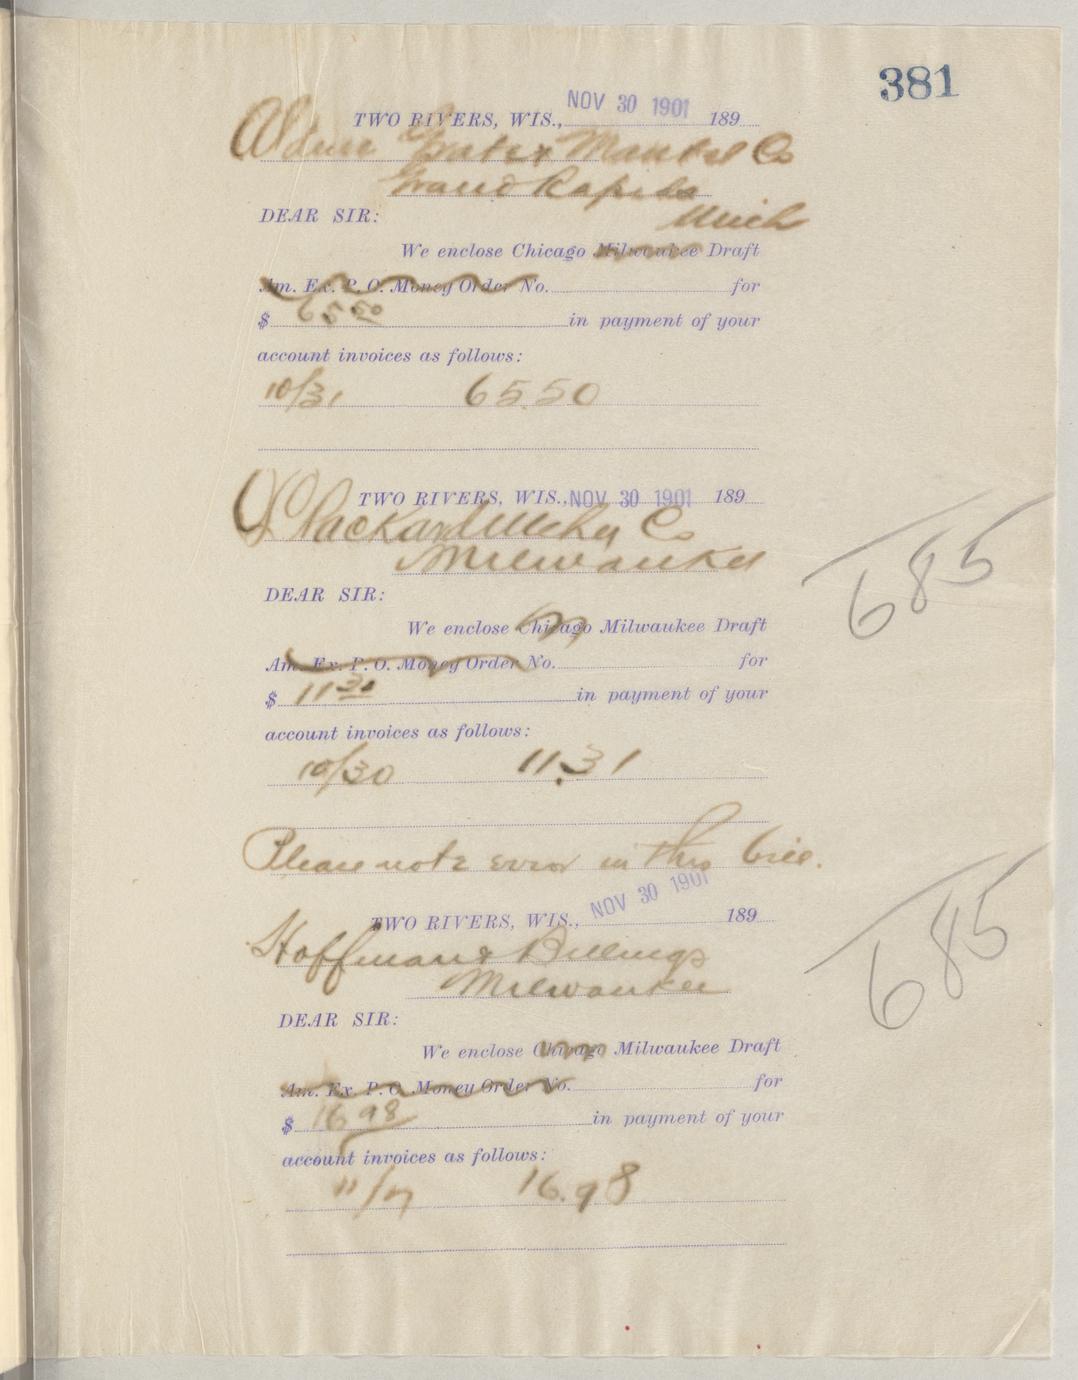 381
TWO RIVERS, WIS., NOV 30 1901 189
Aldine Grate & Mantel Co
Grand Rapids
Mich
DEAR SIR:
We enclose Chicago Milwaukee Draft
Am. Ex. P. O. Money Order No. for
$ 65 50 in payment of your
account invoices as follows:
10/31 65.50
TWO RIVERS, WIS., NOV 30 1901 189
Packard Co
Milwaukee
DEAR SIR:
We enclose Chicago Milwaukee Draft
Am. Ex. P. O. Money Order No. for
$ 11 30 in payment of your
account invoices as follows:
10/30 11.31
Please note error in this bill.
685
TWO RIVERS, WIS., NOV 30 1901 189
Hoffman & Billings
Milwaukee
DEAR SIR:
We enclose Chicago Milwaukee Draft
Am. Ex. P. O. Money Order No. for
$ 16 98 in payment of your
account invoices as follows:
11/17 16.98
685